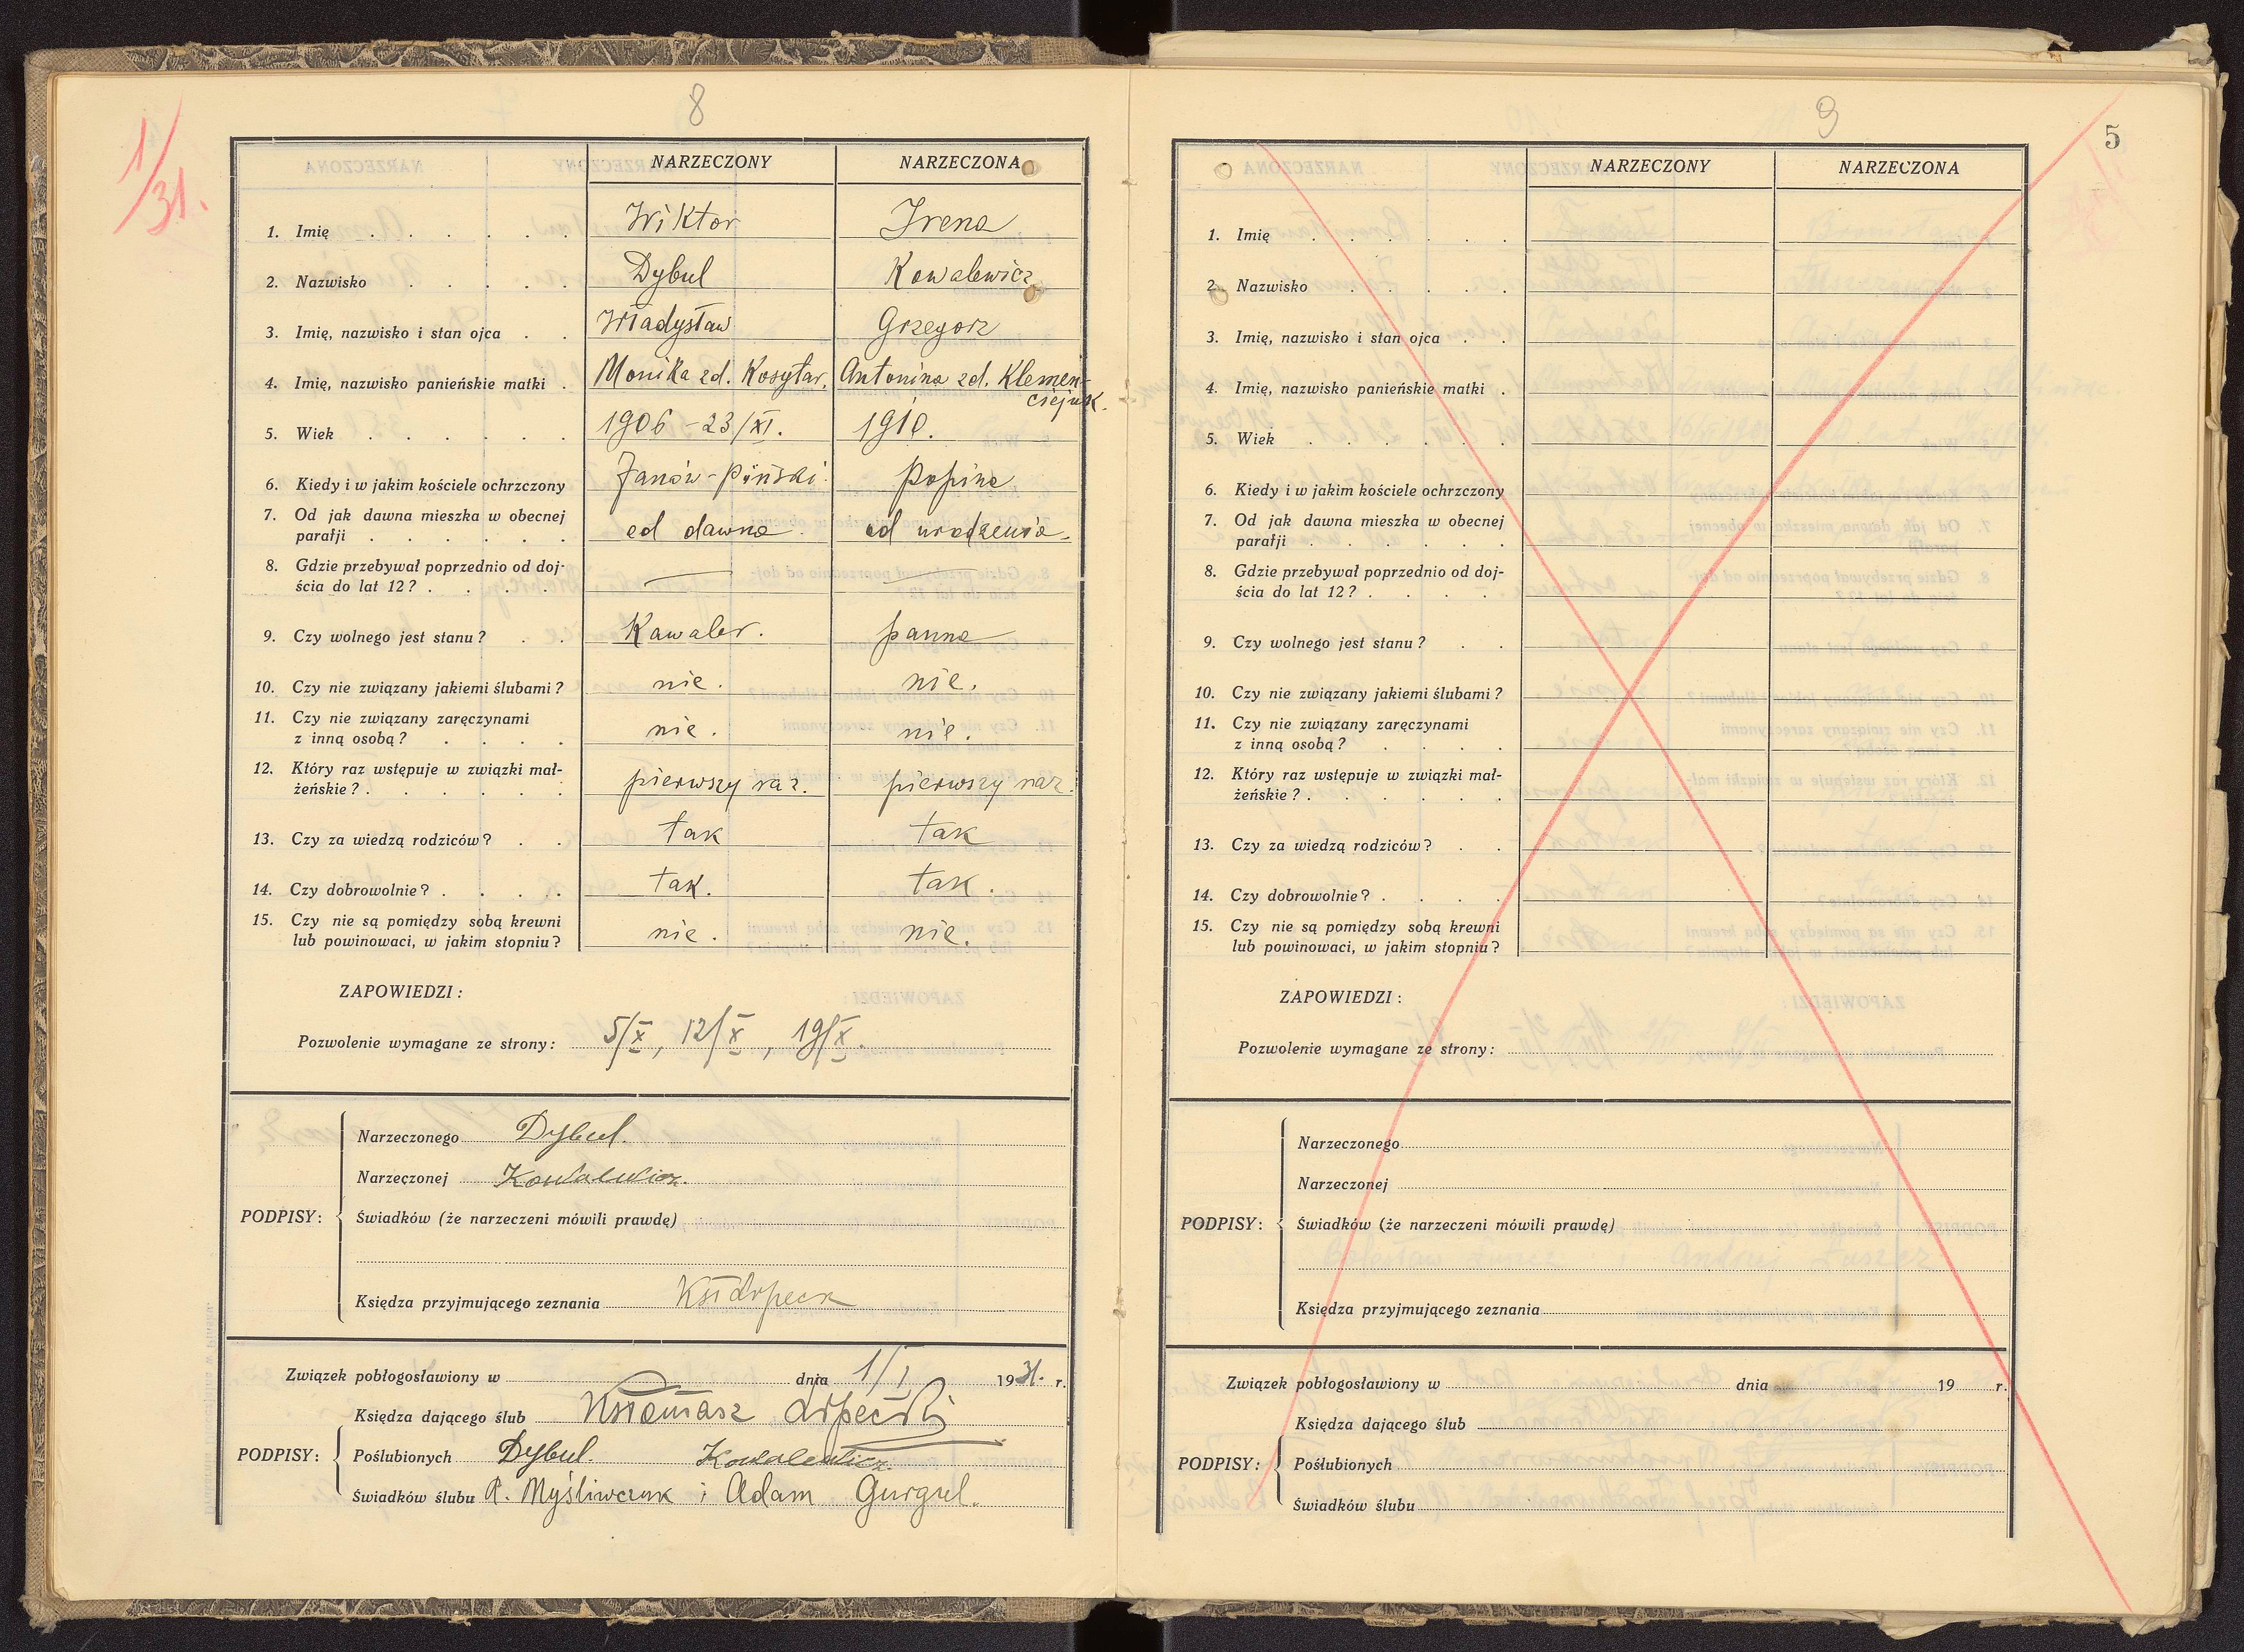 8
1/31.
NARZECZONY NARZECZONA
1. Imię Wiktor Irena
2. Nazwisko Dybul Kowalewicz
3. Imię, nazwisko i stan ojca Władysław Grzegorz
4. Imię, nazwisko panieńskie matki Monika zd. Kosytar. Antonina zd. Klemen-
ciejuk.
5. Wiek 1906 - 23/XI. 1910.
6. Kiedy i w jakim kościele ochrzczony Janów-Piński Popina
7. Od jak dawna mieszka w obecnej
parafji od dawna. od urodzenia.
8. Gdzie przebywał poprzednio od doj-
ścia do lat 12? — —
9. Czy wolnego jest stanu? Kawaler. panna
10. Czy nie związany jakiemi ślubami? nie. nie.
11. Czy nie związany zaręczynami
z inną osobą? nie. nie.
12. Który raz wstępuje w związki mał-
żeńskie? pierwszy raz. pierwszy raz.
13. Czy za wiedzą rodziców? tak tak
14. Czy dobrowolnie? tak. tak.
15. Czy nie są pomiędzy sobą krewni
lub powinowaci, w jakim stopniu? nie. nie.
ZAPOWIEDZI:
Pozwolenie wymagane ze strony: 5/X, 12/X, 19/X.
Narzeczonego Dybul.
Narzeczonej Kowalewicz.
PODPISY: Świadków (że narzeczeni mówili prawdę)
Księdza przyjmującego zeznania
Związek pobłogosławiony w dnia 1/I 1931. r.
Księdza dającego ślub
PODPISY: Poślubionych Dybul. Kowalewicz.
Świadków ślubu P. Myśliwczuk i Adam Gurgul.
9
5
NARZECZONY NARZECZONA
1. Imię
2. Nazwisko
3. Imię, nazwisko i stan ojca
4. Imię, nazwisko panieńskie matki
5. Wiek
6. Kiedy i w jakim kościele ochrzczony
7. Od jak dawna mieszka w obecnej
parafji
8. Gdzie przebywał poprzednio od doj-
ścia do lat 12?
9. Czy wolnego jest stanu?
10. Czy nie związany jakiemi ślubami?
11. Czy nie związany zaręczynami
z inną osobą?
12. Który raz wstępuje w związki mał-
żeńskie?
13. Czy za wiedzą rodziców?
14. Czy dobrowolnie?
15. Czy nie są pomiędzy sobą krewni
lub powinowaci, w jakim stopniu?
ZAPOWIEDZI:
Pozwolenie wymagane ze strony:
Narzeczonego
Narzeczonej
PODPISY: Świadków (że narzeczeni mówili prawdę)
Księdza przyjmującego zeznania
Związek pobłogosławiony w dnia 19 r.
Księdza dającego ślub
PODPISY: Poślubionych
Świadków ślubu